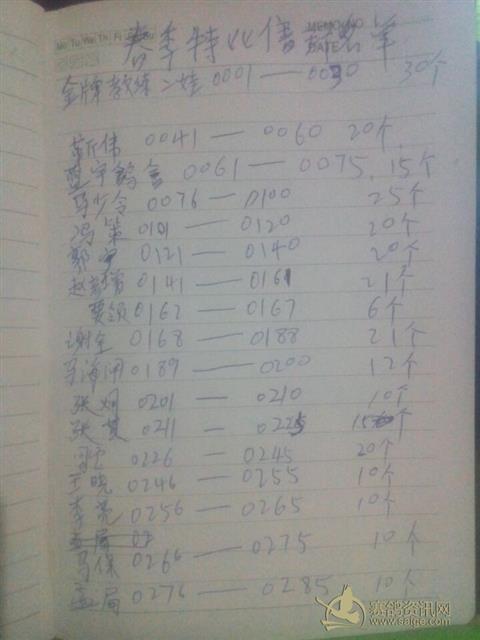 MEMO NO
Mo Tu We Th Fr Sa Su DATE
春季特比信鸽名单
金牌教练二娃 0001—0030 30个
靳伟 0041—0060 20个
宇鸽舍 0061—0075 15个
马少令 0076—0100 25个
冯策 0101—0120 20个
郭 0121—0140 20个
赵 0141—0161 21个
贾领 0162—0167 6个
谢全 0168—0188 21个
马海 0189—0200 12个
张娟 0201—0210 10个
张 0211—0225 15个
0226—0245 20个
王晓 0246—0255 10个
李亮 0256—0265 10个
马保 0266—0275 10个
孟局 0276—0285 10个
赛鸽资讯网
www.saige.com